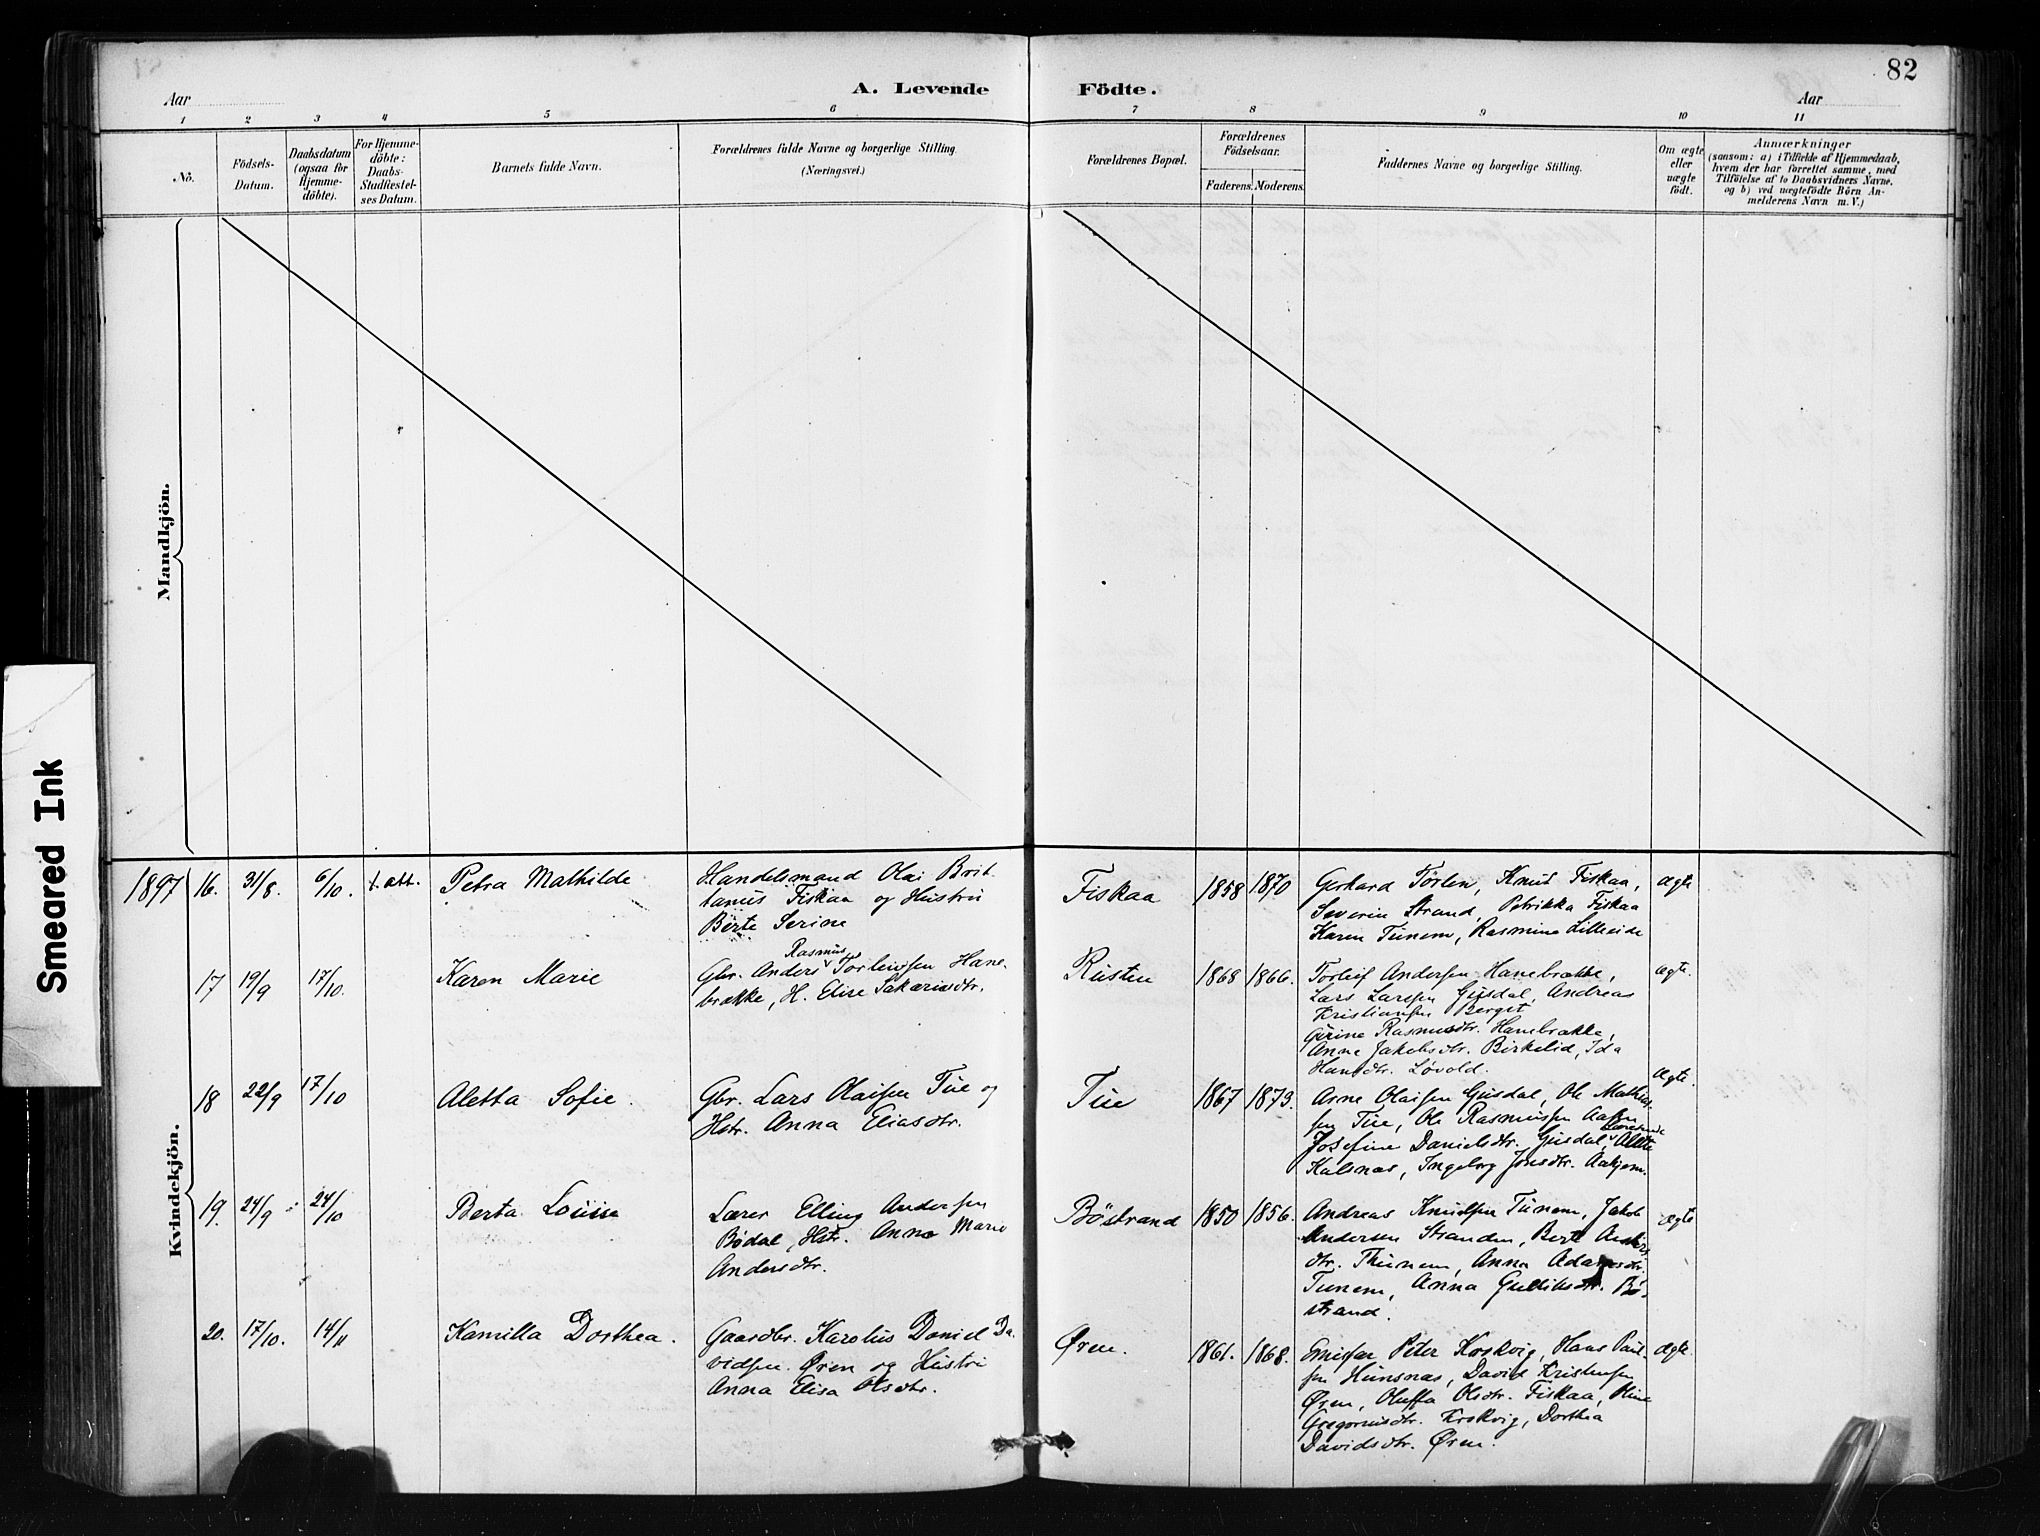 82
Aar
A. Levende
Födte.
Aar
1 2 3 4 5 6 7 8 9 10 11
No.
Födsels-
Datum.
Daabsdatum
(ogsaa for
Hjemme-
döbte).
For Hjemme-
döbte:
Daabs-
Stadfæstel-
ses Datum.
Barnets fulde Navn.
Forældrenes fulde Navne og borgerlige Stilling
(Næringsvei.)
Forældrenes Bopæl.
Forældrenes
Födselsaar.
Faderens. Moderens.
Faddernes Navne og borgerlige Stilling.
Om ægte
eller
uægte
födt.
Anmærkninger
(saasom: a) i Tilfælde af Hjemmedaab,
hvem der har forrettet samme, med
Tilföielse af to Daabsvidners Navne,
og b) ved uægtefödte Börn An-
melderens Navn m. V.)
Mandkjön.
Smeared Ink
Kvindekjön.
1897 16. 31/8. 6/10. f. att.
Petra Mathilde
Handelsmand Olai Brit
tanus Fiskaa og Hustru
Berte Serine
Fiskaa
1858 1870
Gerhard Törlen, Knut Fiskaa,
Severin Strand, Petrikka Fiskaa
Karen Tunem, Rasmine Lilleeide
ægte
17 19/9 17/10.
Karen Marie
Rasmus
Gbr. Anders Torleifsen Hane-
brække, H. Elise Sakariasdtr.
Rusten
1868 1866.
Torleif Andersen Hanebrække,
Lars Larsen Gusdal, Andreas
Kristiansen Berget
Gurine Rasmusdtr. Hanebrække,
Anne Jakobsdtr. Birkelid, Ida
Hansdtr. Løvold.
ægte.
18 22/9 17/10
Aletta Sofie.
Gbr. Lars Olaisen Tue og
Hstr. Anna Eliasdtr.
Tue
1867 1873.
Arne Olaisen Gusdal, Ole Mathias-
sen Tue, Ole Rasmussen Aahjem
Josefine Danielsdtr. Gusdal, Alette
Kalsnæs, Ingeborg Jonsdtr. Aahjem.
Ægte.
19. 24/9 24/10
Berta Louise
Lærer Elling Andersen
Bødal, Hstr. Anna Marie
Andersdtr.
Böstrand
1850 1856.
Andreas Knudsen Tunem, Jakob
Andersen Stranden, Berte Anders-
dtr. Thunem, Anna Adamsdtr.
Tunem, Anna Gulliksdtr. Bö-
strand.
ægte
20. 17/10. 14/11
Kamilla Dorthea.
Gaardbr. Karolus Daniel Da-
vidsen Øren og Hustru
Anna Elisa Olsdtr.
Øren.
1861. 1868.
Emissær Peter Krokvig, Hans Paul-
sen Hunsnæs, David Kristensen
Øren, Oluffa Olsdtr. Fiskaa, Oline
Gregoriusdtr. Krokvig, Dorthea
Davidsdtr. Øren.
ægte.